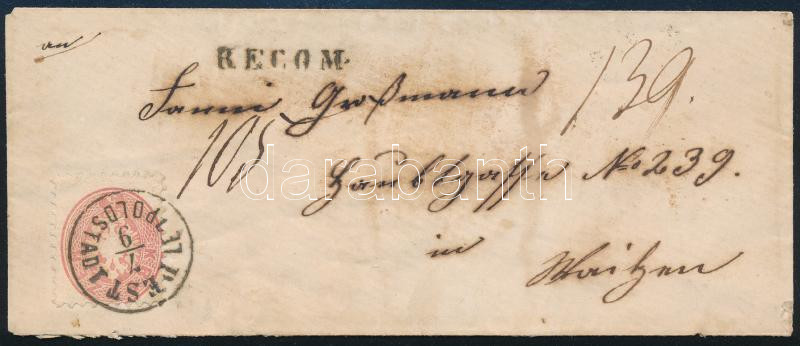 an
RECOM.
Fanni Großmann
139.
105
Hauptgasse No 239.
in
Waitzen
PEST LEOPOLDSTADT
7/9
darabanth